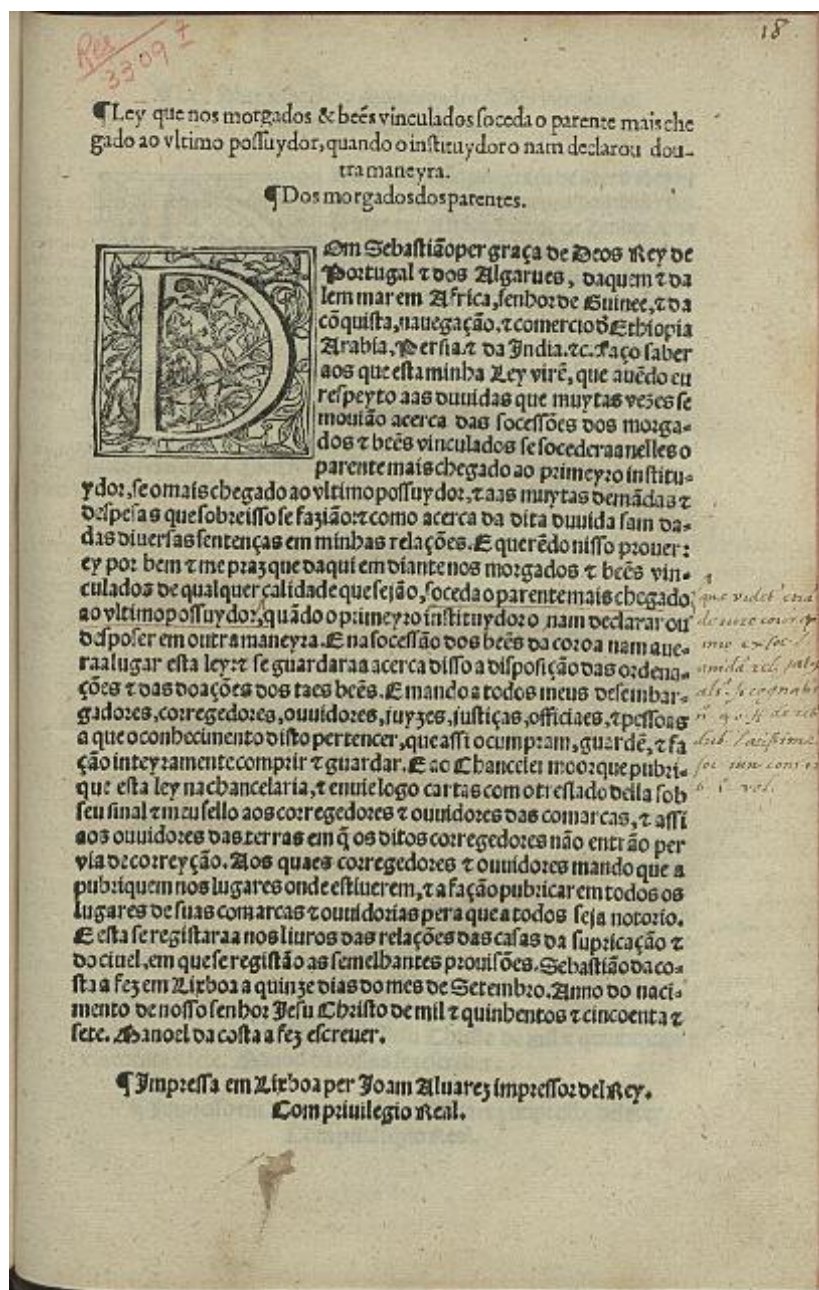 18
Res
3309 
¶Ley que nos morgados & beẽs vinculados soceda o parente mais che
gado ao vltimo possuydor, quando o instituydor o nam declarou dou-
tra maneyra.
¶Dos morgados dos parentes.
DOm Sebastiãoper graça de Deos Rey de
Portugal ⁊ dos Algarues, daquem ⁊ da
lem mar em Africa, senhor de Guinee, ⁊ da
cõquista, nauegação, ⁊ comercio d̃ Ethiopia
Arabia, Persia. ⁊ da India. ⁊c. Faço saber
aos que esta minha Ley virẽ, que auẽdo eu
respeyto aas duuidas que muytas vezes se
mouião acerca das socessões dos morga-
dos ⁊ beẽs vinculados se socederaa nelles o
parente mais chegado ao primeyro institu-
ydor, se o mais chegado ao vltimo possuydor, ⁊ aas muytas demãdas ⁊
despesas que sobre isso se fazião: ⁊ como acerca da dita duuida sam da-
das diuersas sentenças em minhas relações. E querẽdo nisso prouer:
ey por bem ⁊ me praz que daqui em diante nos morgados ⁊ beẽs vin-
culados de qualquer calidade que sejão, soceda o parente mais chegado
ao vltimo possuydor, quãdo o primeyro instituydor o nam declarar ou
desposer em outra maneyra. E na socessão dos beẽs da coroa nam aue-
raa lugar esta ley: ⁊ se guardaraa acerca disso a disposição das ordena-
ções ⁊ das doações dos taes beẽs. E mando a todos meus desembar-
gadores, corregedores, ouuidores, juyzes, justiças, officiaes, ⁊ pessoas
a que o conhecimento disto pertencer, que assi o cumpram, guardẽ, ⁊ fa
ção inteyramente comprir ⁊ guardar. E ao Chanceler moor que pubri-
que esta ley na chancelaria, ⁊ enuie logo cartas com o treslado della sob
seu sinal ⁊ meu sello aos corregedores ⁊ ouuidores das comarcas, ⁊ assi
aos ouuidores das terras em q̃ os ditos corregedores não entrão per
via de correyção. Aos quaes corregedores ⁊ ouuidores mando que a
pubriquem nos lugares onde estiuerem, ⁊ a fação pubricar em todos os
lugares de suas comarcas ⁊ ouuidorias pera que a todos seja notorio.
E esta se registaraa nos liuros das relações das casas da supricação ⁊
do ciuel, em que se registão as semelhantes prouisões. Sebastião da co-
sta a fez em Lixboa a quinze dias do mes de Setembro. Anno do naci-
mento de nosso senhor Jesu Christo de mil ⁊ quinhentos ⁊ cincoenta ⁊
sete. Manoel da costa a fez escreuer.
¶Impressa em Lixboa per Joam Aluarez impressor del Rey.
Com priuilegio Real.